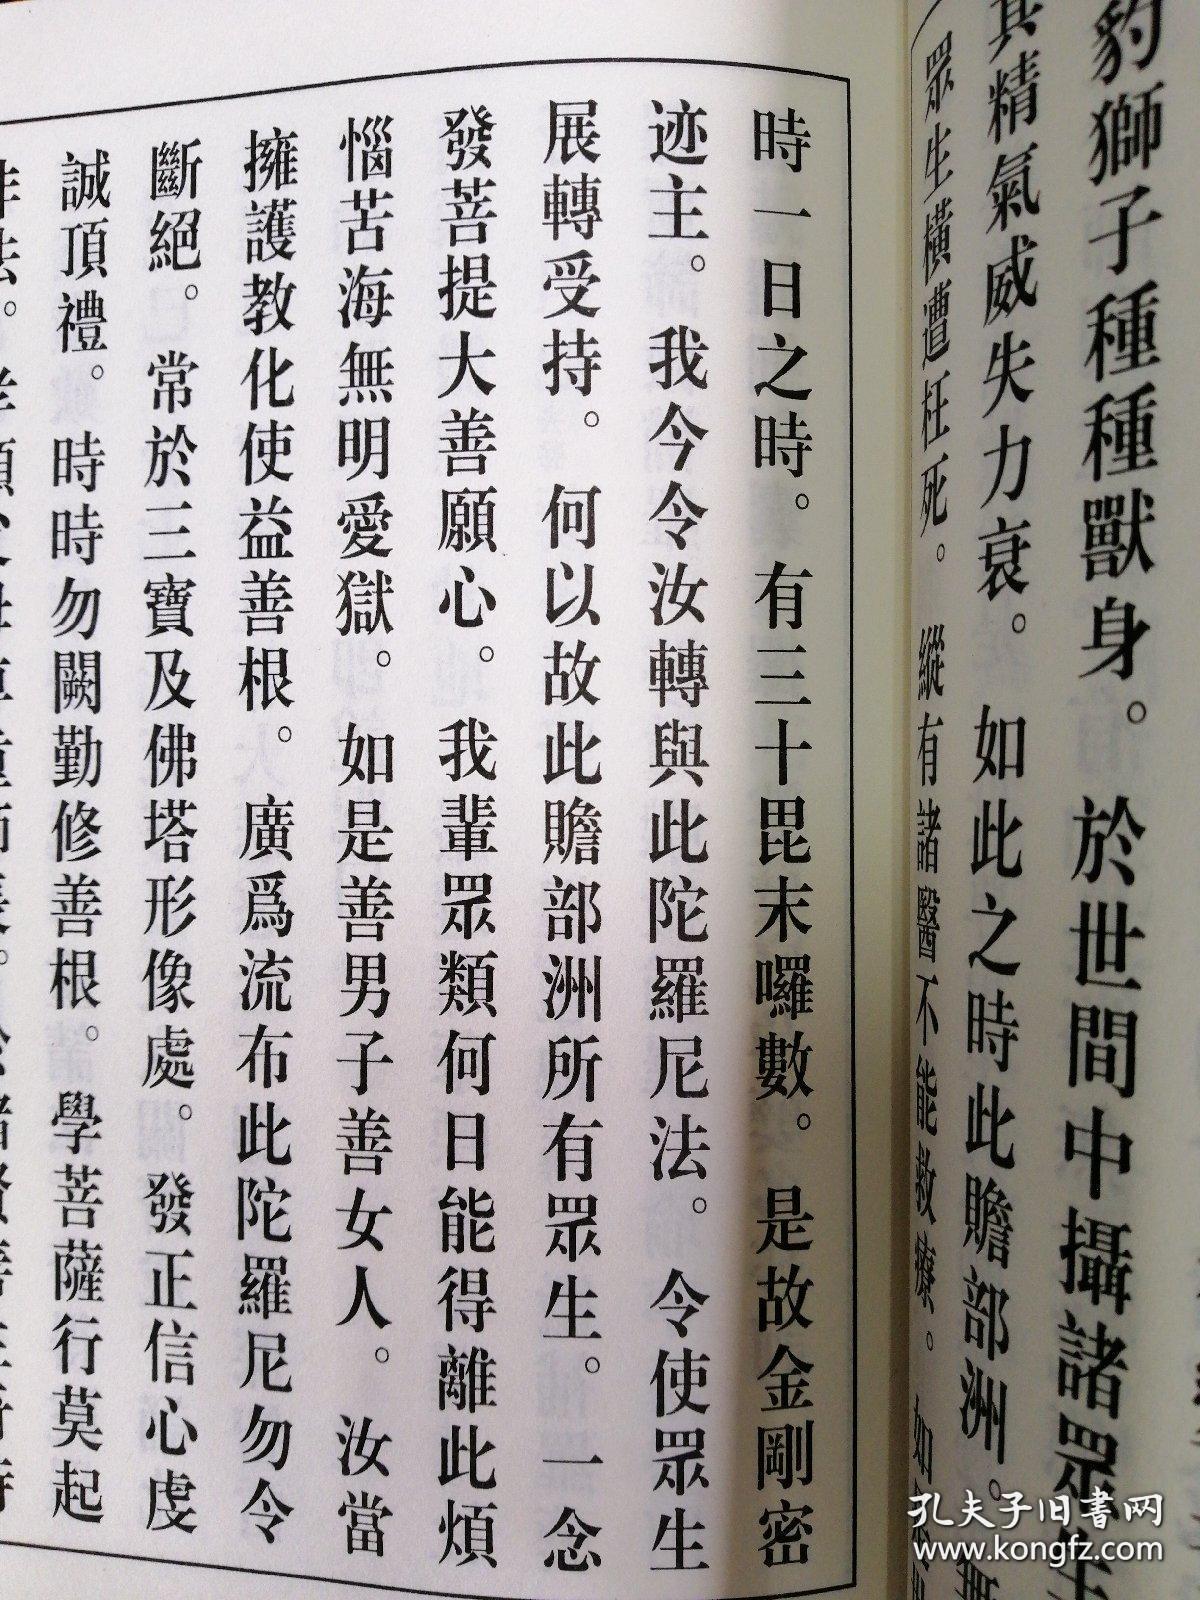 豹獅子種種獸身。於世間中攝諸眾生
其精氣威失力衰。如此之時此贍部洲。
眾生橫遭枉死。縱有諸醫不能救療。如
時一日之時。有三十毘末囉數。是故金剛密
迹主。我今令汝轉與此陀羅尼法。令使眾生
展轉受持。何以故此贍部洲所有眾生。一念
發菩提大善願心。我輩眾類何日能得離此煩
惱苦海無明愛獄。如是善男子善女人。汝當
擁護教化使益善根。廣爲流布此陀羅尼勿令
斷絕。常於三寶及佛塔形像處。發正信心虔
誠頂禮。時時勿闕勤修善根。學菩薩行莫起
非法。孝順父母尊重師長。
孔夫子旧书网
www.kongfz.com